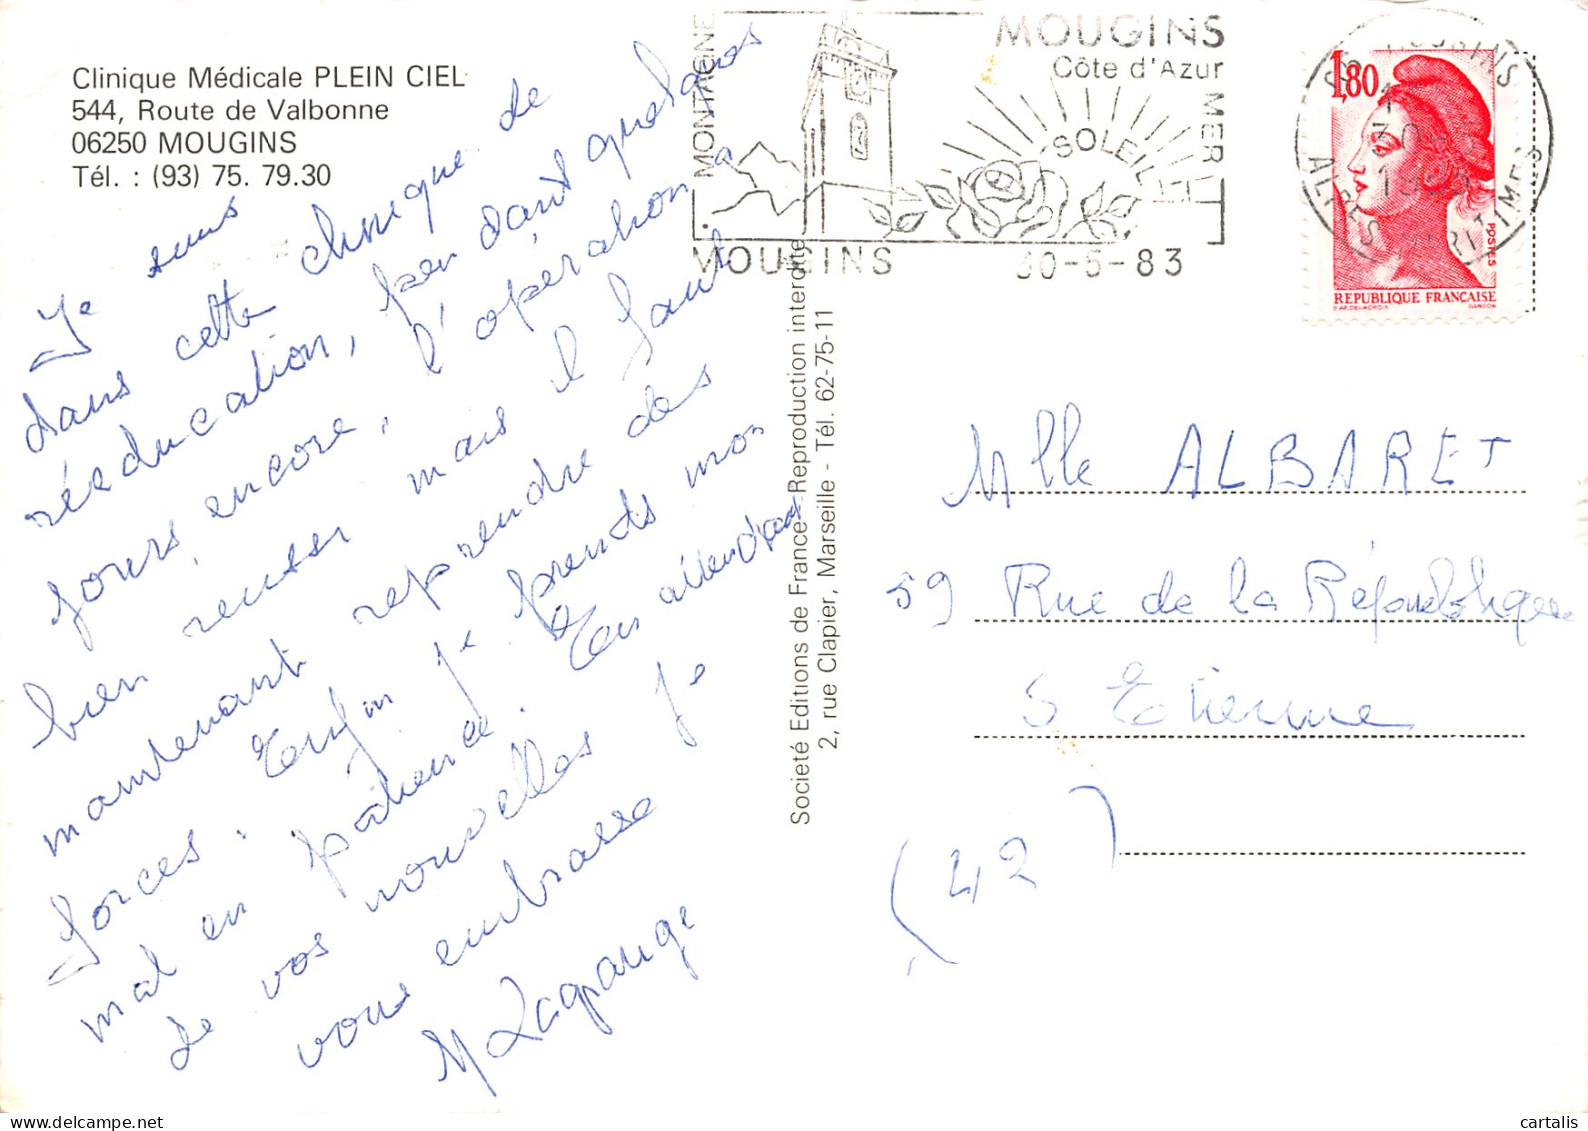 Clinique Médicale PLEIN CIEL
544, Route de Valbonne
06250 MOUGINS
Tél. : (93) 75. 79.30
Je suis
dans cette clinique de
rééducation, pendant quelques
jours encore, l'opération a
bien reussi mais il faut
maintenant reprendre des
forces. Enfin je prends mon
mal en patience. En attendant
de vos nouvelles je
vous embrasse
M Lagrange
Societé Editions de France-Reproduction interdite
2, rue Clapier, Marseille - Tél. 62-75-11
MONTAGNE
MOUGINS
Côte d'Azur
MER
SOLEIL
MOUGINS 30-5-83
ALPES MARITIMES
1,80
POSTES
REPUBLIQUE FRANÇAISE
D'AP. DELACROIX GANDON
Mlle ALBARET
59 Rue de la République
S Etienne
(42)
cartalis